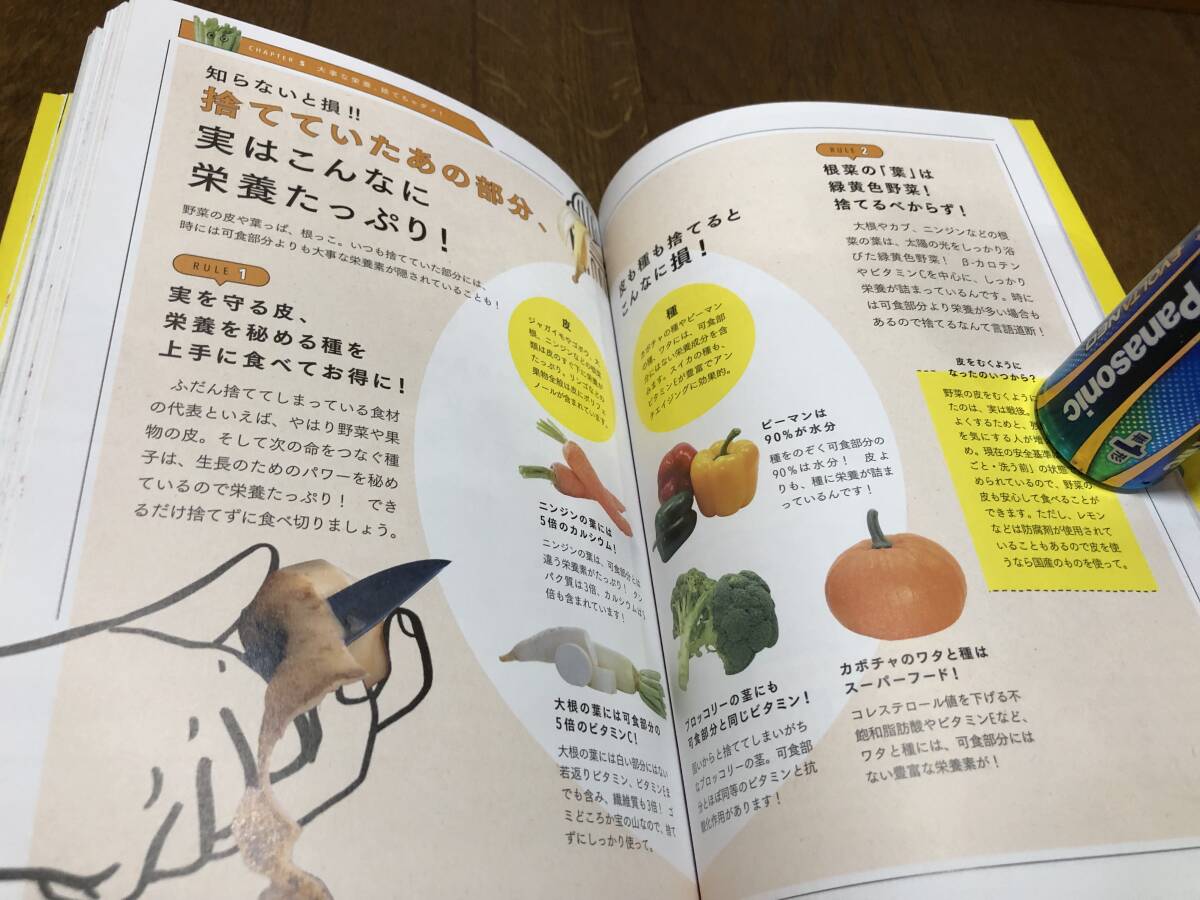 CHAPTER 5 大事な栄養、捨てちゃダメ!
知らないと損!!
捨てていたあの部分、
実はこんなに
栄養たっぷり!
野菜の皮や葉っぱ、根っこ。いつも捨てていた部分には、
時には可食部分よりも大事な栄養素が隠されていることも!
RULE 1
実を守る皮、
栄養を秘める種を
上手に食べてお得に!
ふだん捨ててしまっている食材
の代表といえば、やはり野菜や果
物の皮。そして次の命をつなぐ種
子は、生長のためのパワーを秘め
ているので栄養たっぷり! でき
るだけ捨てずに食べ切りましょう。
皮も種も捨てると
こんなに損!
皮
ジャガイモやゴボウ、大
根、ニンジンなどの根菜
類は皮のすぐ下に栄養が
たっぷり。リンゴなどの
果物全般は皮にポリフェ
ノールが含まれています。
種
カボチャの種やピーマン
の種、ワタには、可食部
にはない栄養成分を含
みます。スイカの種も、
ビタミンEが豊富でアン
チエイジングに効果的。
ニンジンの葉には
5倍のカルシウム!
ニンジンの葉は、可食部分とは
違う栄養素がたっぷり! タン
パク質は3倍、カルシウムは5
倍も含まれています!
大根の葉には可食部分の
5倍のビタミンC!
大根の葉には白い部分にはない
若返りビタミン、ビタミンEま
でも含み、繊維質も3倍! ゴ
ミどころか宝の山なので、捨て
ずにしっかり使って。
ピーマンは
90%が水分
種をのぞく可食部分の
90%は水分! 皮よ
りも、種に栄養が詰ま
っているんです!
ブロッコリーの茎にも
可食部分と同じビタミン!
固いからと捨ててしまいがち
なブロッコリーの茎。可食部
分とほぼ同等のビタミンと抗
酸化作用があります!
カボチャのワタと種は
スーパーフード!
コレステロール値を下げる不
飽和脂肪酸やビタミンEなど、
ワタと種には、可食部分には
ない豊富な栄養素が!
RULE 2
根菜の「葉」は
緑黄色野菜!
捨てるべからず!
大根やカブ、ニンジンなどの根
菜の葉は、太陽の光をしっかり浴
びた緑黄色野菜! β-カロテン
やビタミンCを中心に、しっかり
栄養が詰まっているんです。時に
は可食部分より栄養が多い場合も
あるので捨てるなんて言語道断!
皮をむくように
なったのいつから?
野菜の皮をむくように
たのは、実は戦後。
よくするためと、残
を気にする人が増
め。現在の安全基準
ごと・洗う前」の状態
められているので、野菜の
皮も安心して食べることが
できます。ただし、レモン
などは防腐剤が使用されて
いることもあるので皮を使
うなら国産のものを使って。
Panasonic
EVOLTA NEO